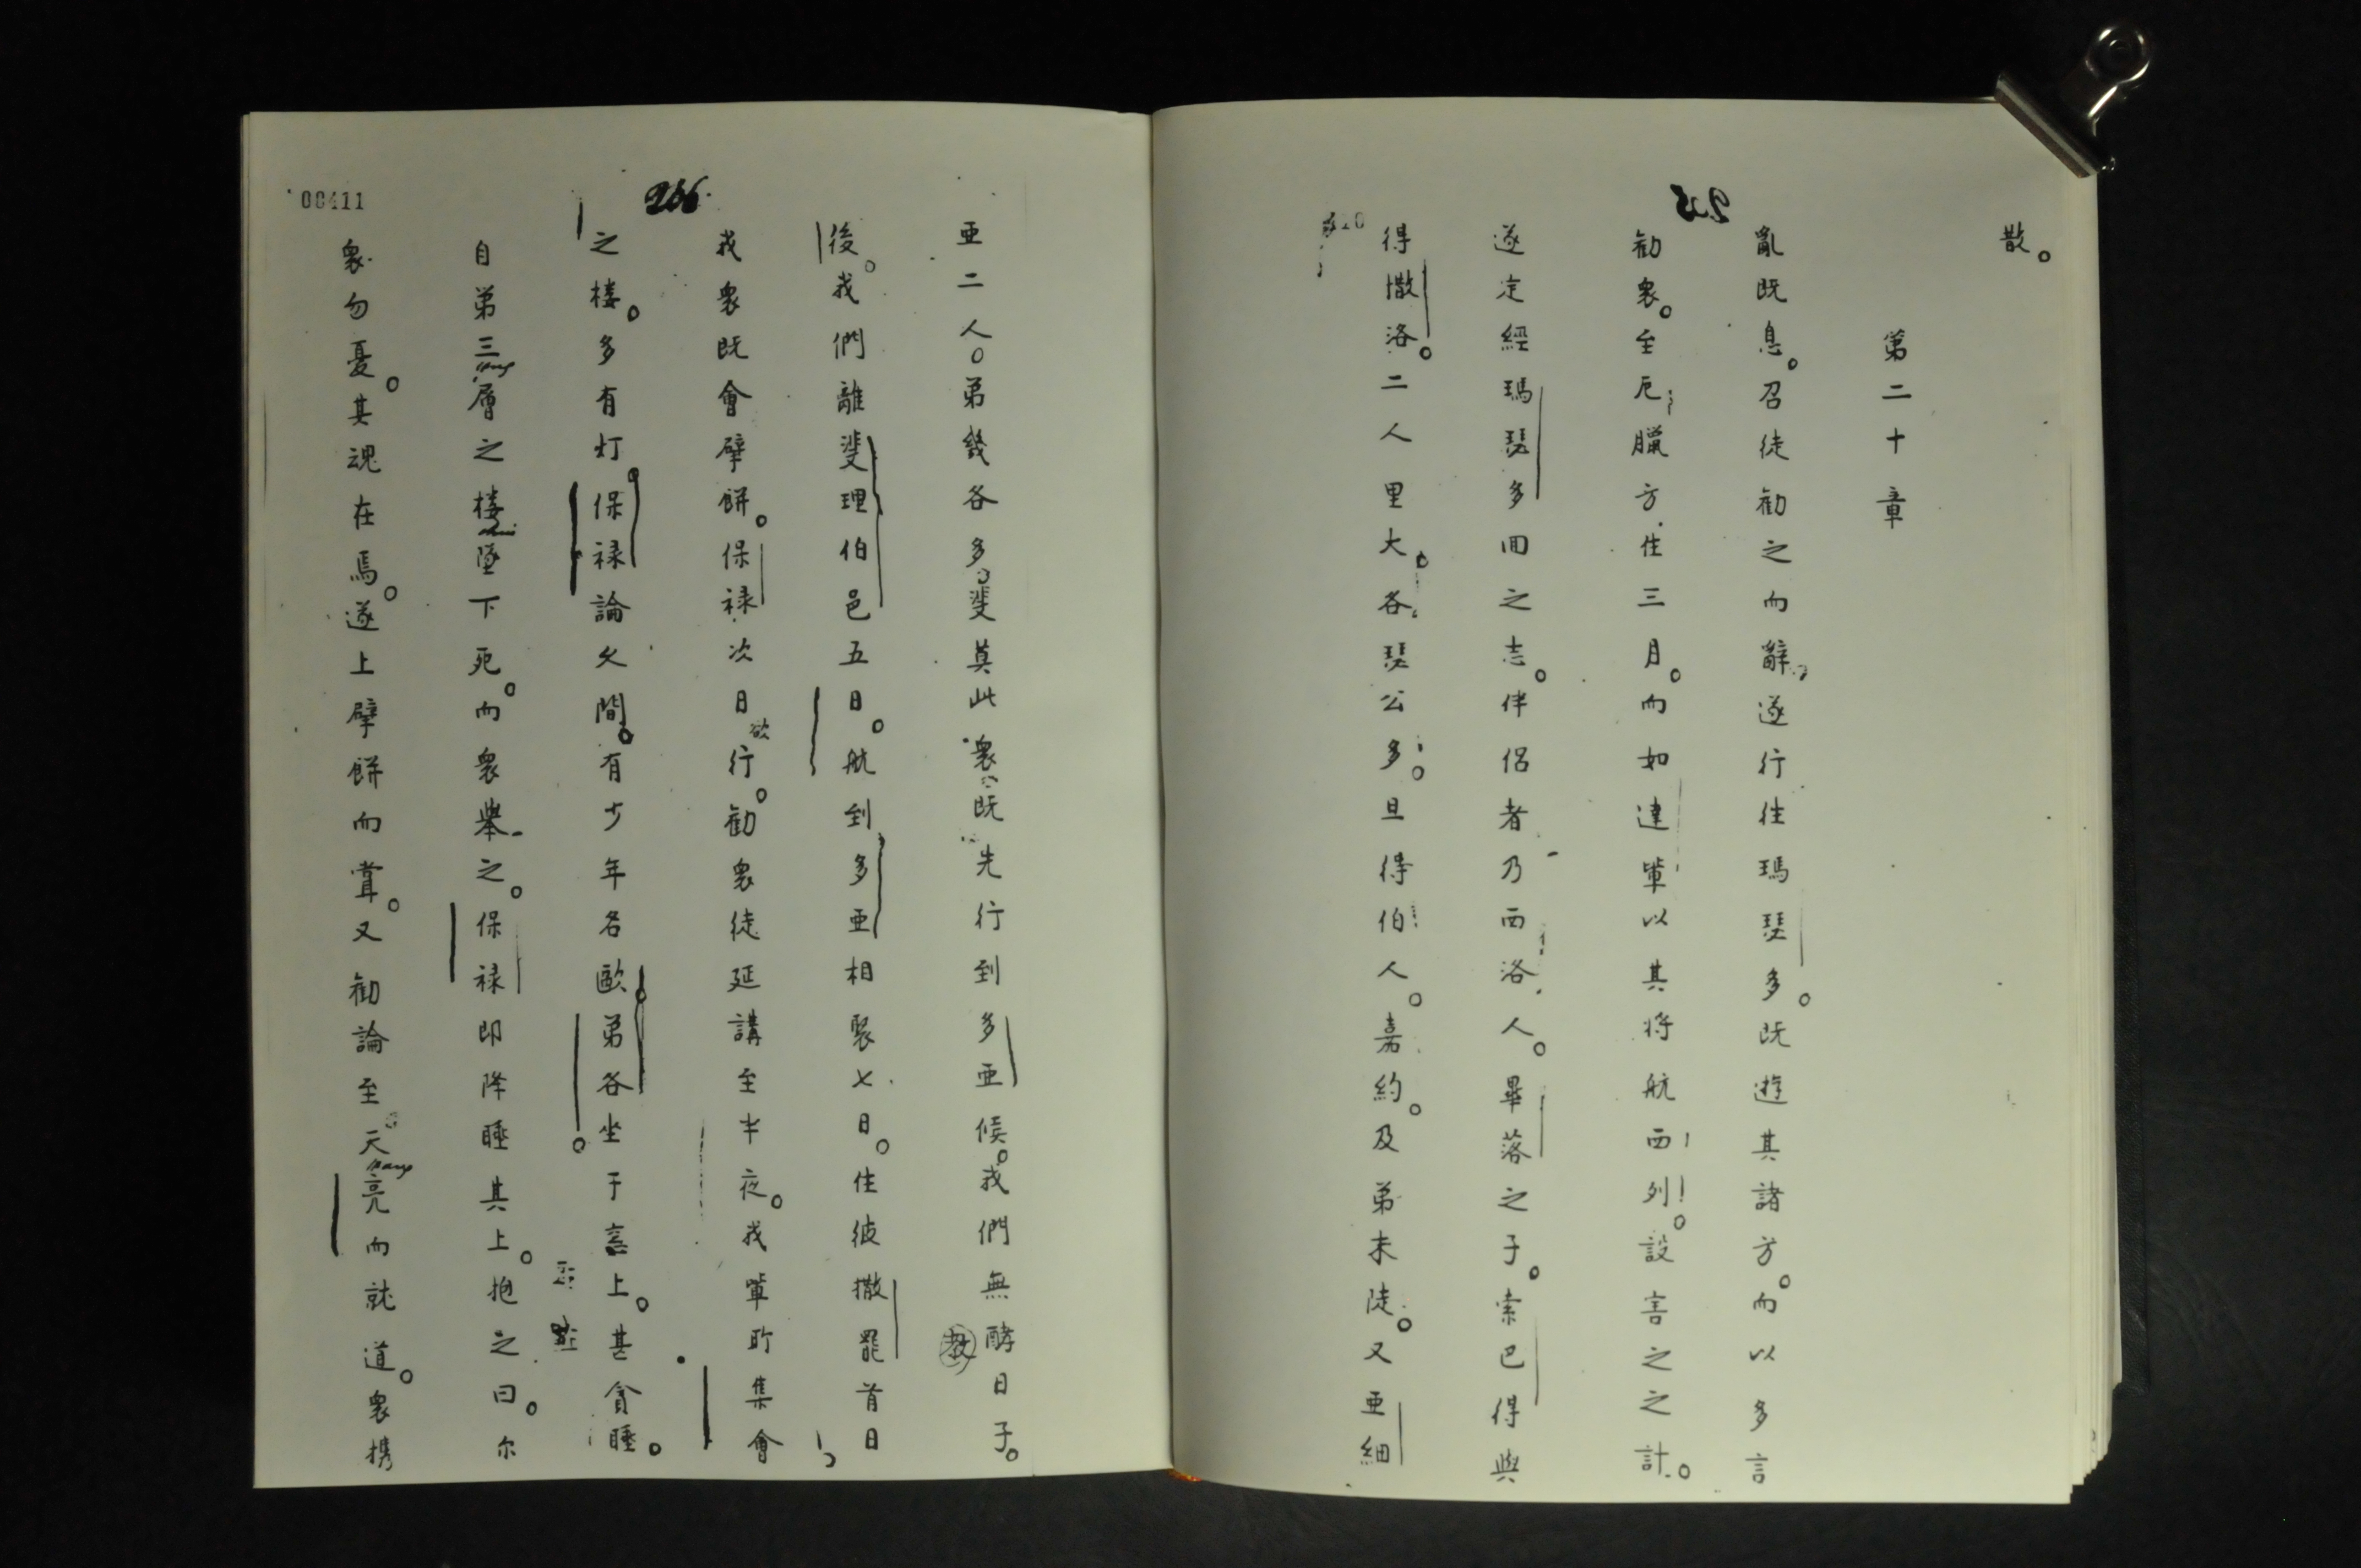 散。
第二十章
亂既息。召徒勸之而辭。遂行往瑪琵多。既遊其諸方。而以多言
勸衆。至厄臘方住三月。而如達軰以其将航西列。設害之之計。
遂定經瑪琵多囬之志。伴侣者乃西洛人。畢落之子。索巴得與
得撒洛。二人里大。各琵公多。旦得伯人。嘉約。及弟末陡。又亜細
亜二人。弟幾各多。斐莫此衆既先行到多亜候。我們無酵日子。
後。我們離斐理伯邑五日。航到多亜相聚七日。住彼撒罷首日
我衆既會擘餅。保禄次日欲行。勸衆徒延講至半夜。我軰所集會
之楼。多有灯。保禄論久間。有少年名歐弟各坐于窓上。甚貪睡。
自弟三層之楼墜下死。而衆舉之。保禄即降睡其上。抱之曰。尔
衆勿憂。其魂在焉。遂上擘餅而嘗。又勸論至天亮而就道。衆携
00411